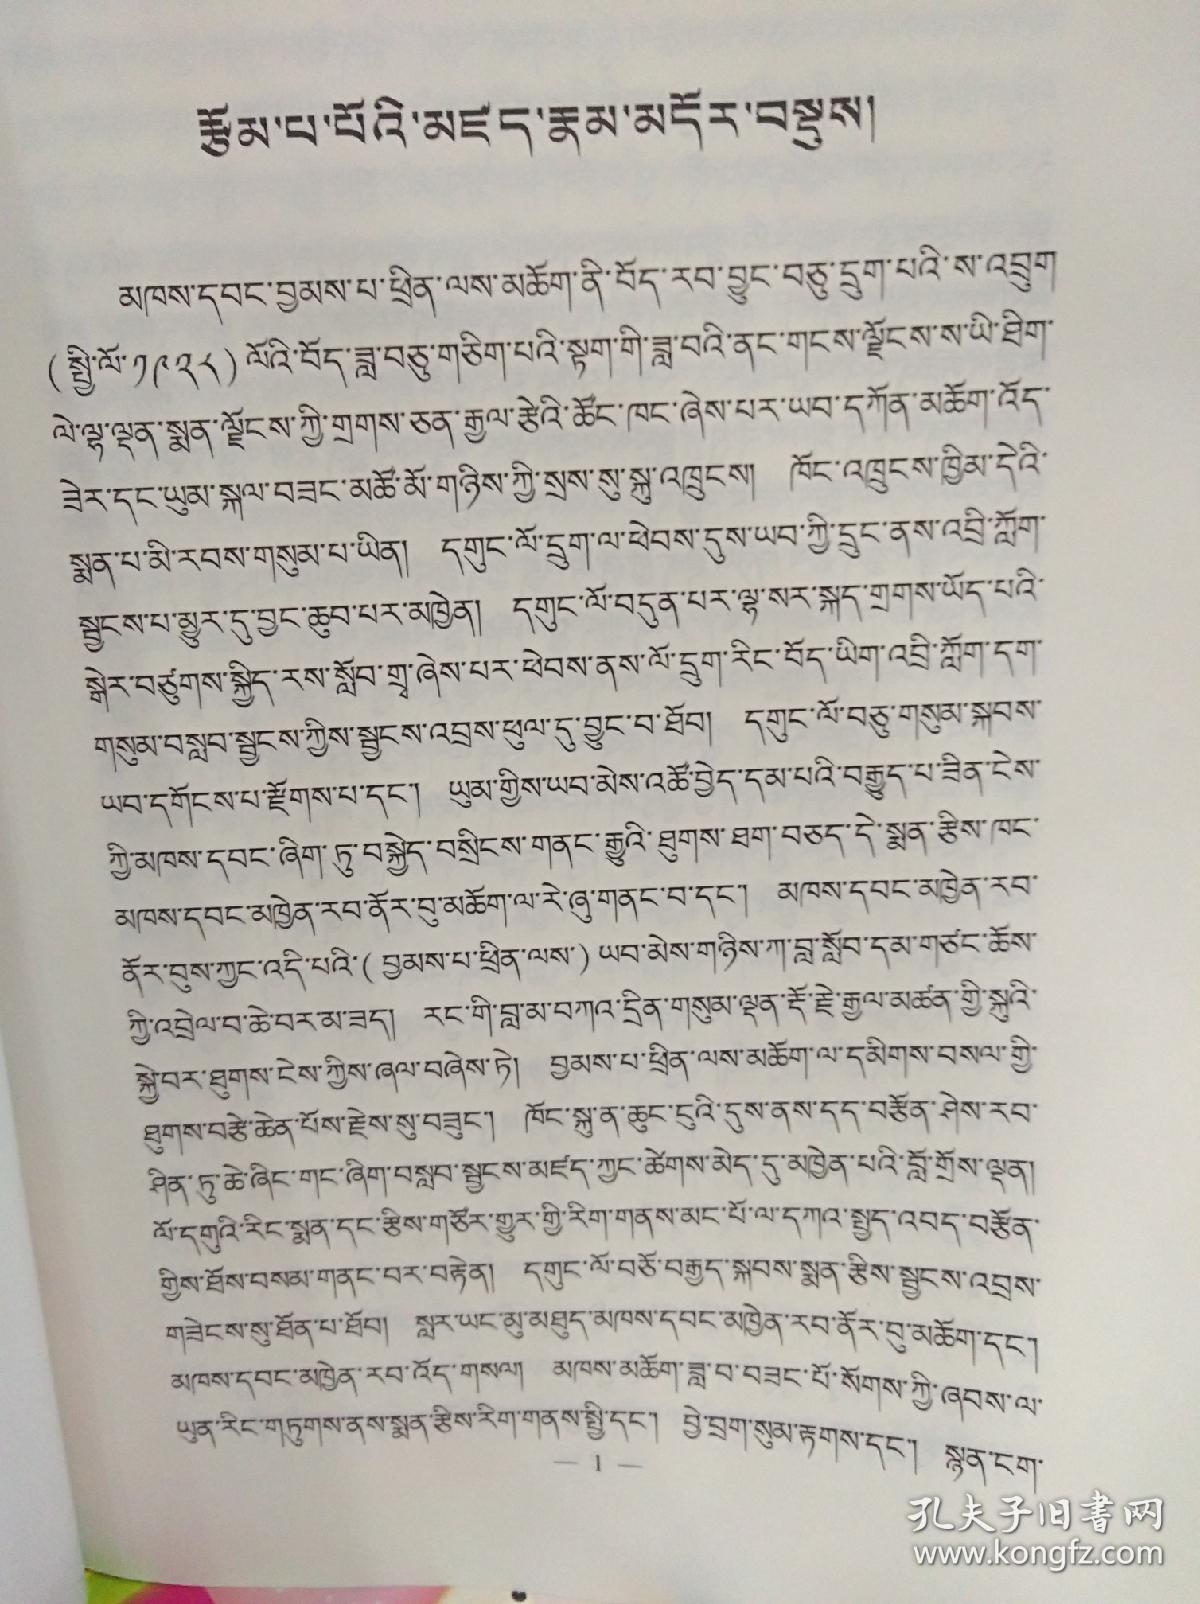 རྩོམ་པ་པོའི་མཛད་རྣམ་མདོར་བསྡུས།
མཁས་དབང་བྱམས་པ་ཕྲིན་ལས་མཆོག་ནི་བོད་རབ་བྱུང་བཅུ་དྲུག་པའི་ས་འབྲུག
(སྤྱི་ལོ་༡༩༢༨)ལོའི་བོད་ཟླ་བཅུ་གཅིག་པའི་སྟག་གི་ཟླ་བའི་ནང་གངས་ལྗོངས་ས་ཡི་ཐིག་
ལེ་ལྷ་ལྡན་སྨན་ལྗོངས་ཀྱི་གྲགས་ཅན་རྒྱལ་རྩེའི་ཚོང་ཁང་ཞེས་པར་ཡབ་དཀོན་མཆོག་འོད་
ཟེར་དང་ཡུམ་སྐལ་བཟང་མཚོ་མོ་གཉིས་ཀྱི་སྲས་སུ་སྐུ་འཁྲུངས། ཁོང་འཁྲུངས་ཁྱིམ་དེའི་
སྨན་པ་མི་རབས་གསུམ་པ་ཡིན། དགུང་ལོ་དྲུག་ལ་ཕེབས་དུས་ཡབ་ཀྱི་དྲུང་ནས་འབྲི་ཀློག་
སྦྱངས་པ་མྱུར་དུ་བྱང་ཆུབ་པར་མཁྱེན། དགུང་ལོ་བདུན་པར་ལྷ་སར་སྐད་གྲགས་ཡོད་པའི་
སྒེར་བཙུགས་སྐྱིད་རས་སློབ་གྲྭ་ཞེས་པར་ཕེབས་ནས་ལོ་དྲུག་རིང་བོད་ཡིག་འབྲི་ཀློག་དག་
གསུམ་བསླབ་སྦྱངས་ཀྱིས་སྦྱངས་འབྲས་ཕུལ་དུ་བྱུང་བ་ཐོབ། དགུང་ལོ་བཅུ་གསུམ་སྐབས་
ཡབ་དགོངས་པ་རྫོགས་པ་དང་། ཡུམ་གྱིས་ཡབ་མེས་འཚོ་བྱེད་དམ་པའི་བརྒྱུད་པ་ཟིན་ངེས་
ཀྱི་མཁས་དབང་ཞིག་ཏུ་བསྐྱེད་བསྲིངས་གནང་རྒྱུའི་ཐུགས་ཐག་བཅད་དེ་སྨན་རྩིས་ཁང་
མཁས་དབང་མཁྱེན་རབ་ནོར་བུ་མཆོག་ལ་རེ་ཞུ་གནང་བ་དང་། མཁས་དབང་མཁྱེན་རབ་
ནོར་བུས་ཀྱང་འདི་པའི་(བྱམས་པ་ཕྲིན་ལས་)ཡབ་མེས་གཉིས་ཀ་བླ་སློབ་དམ་གཙང་ཆོས་
ཀྱི་འབྲེལ་བ་ཆེ་བར་མ་ཟད། རང་གི་བླ་མ་བཀའ་དྲིན་གསུམ་ལྡན་རྡོ་རྗེ་རྒྱལ་མཚན་གྱི་སྐུའི་
སྐྱེ་བར་ཐུགས་ངེས་ཀྱིས་ཞལ་བཞེས་ཏེ། བྱམས་པ་ཕྲིན་ལས་མཆོག་ལ་དམིགས་བསལ་གྱི་
ཐུགས་བརྩེ་ཆེན་པོས་རྗེས་སུ་བཟུང་། ཁོང་སྐུ་ན་ཆུང་ངུའི་དུས་ནས་དད་བརྩོན་ཤེས་རབ་
ཤིན་ཏུ་ཆེ་ཞིང་གང་ཞིག་བསླབ་སྦྱངས་མཛད་ཀྱང་ཚེགས་མེད་དུ་མཁྱེན་པའི་བློ་གྲོས་ལྡན།
ལོ་དགུའི་རིང་སྨན་དང་རྩིས་གཙོར་གྱུར་གྱི་རིག་གནས་མང་པོ་ལ་དཀའ་སྤྱད་འབད་བརྩོན་
གྱིས་ཐོས་བསམ་གནང་བར་བརྟེན། དགུང་ལོ་བཅོ་བརྒྱད་སྐབས་སྨན་རྩིས་སྦྱངས་འབྲས་
གཟེངས་སུ་ཐོན་པ་ཐོབ། སླར་ཡང་མུ་མཐུད་མཁས་དབང་མཁྱེན་རབ་ནོར་བུ་མཆོག་དང་།
མཁས་དབང་མཁྱེན་རབ་འོད་གསལ། མཁས་མཆོག་ཟླ་བ་བཟང་པོ་སོགས་ཀྱི་ཞབས་ལ་
ཡུན་རིང་གཏུགས་ནས་སྨན་རྩིས་རིག་གནས་སྤྱི་དང་། བྱེ་བྲག་སུམ་རྟགས་དང་། སྙན་ངག་
— 1 —
孔夫子旧书网
www.kongfz.com